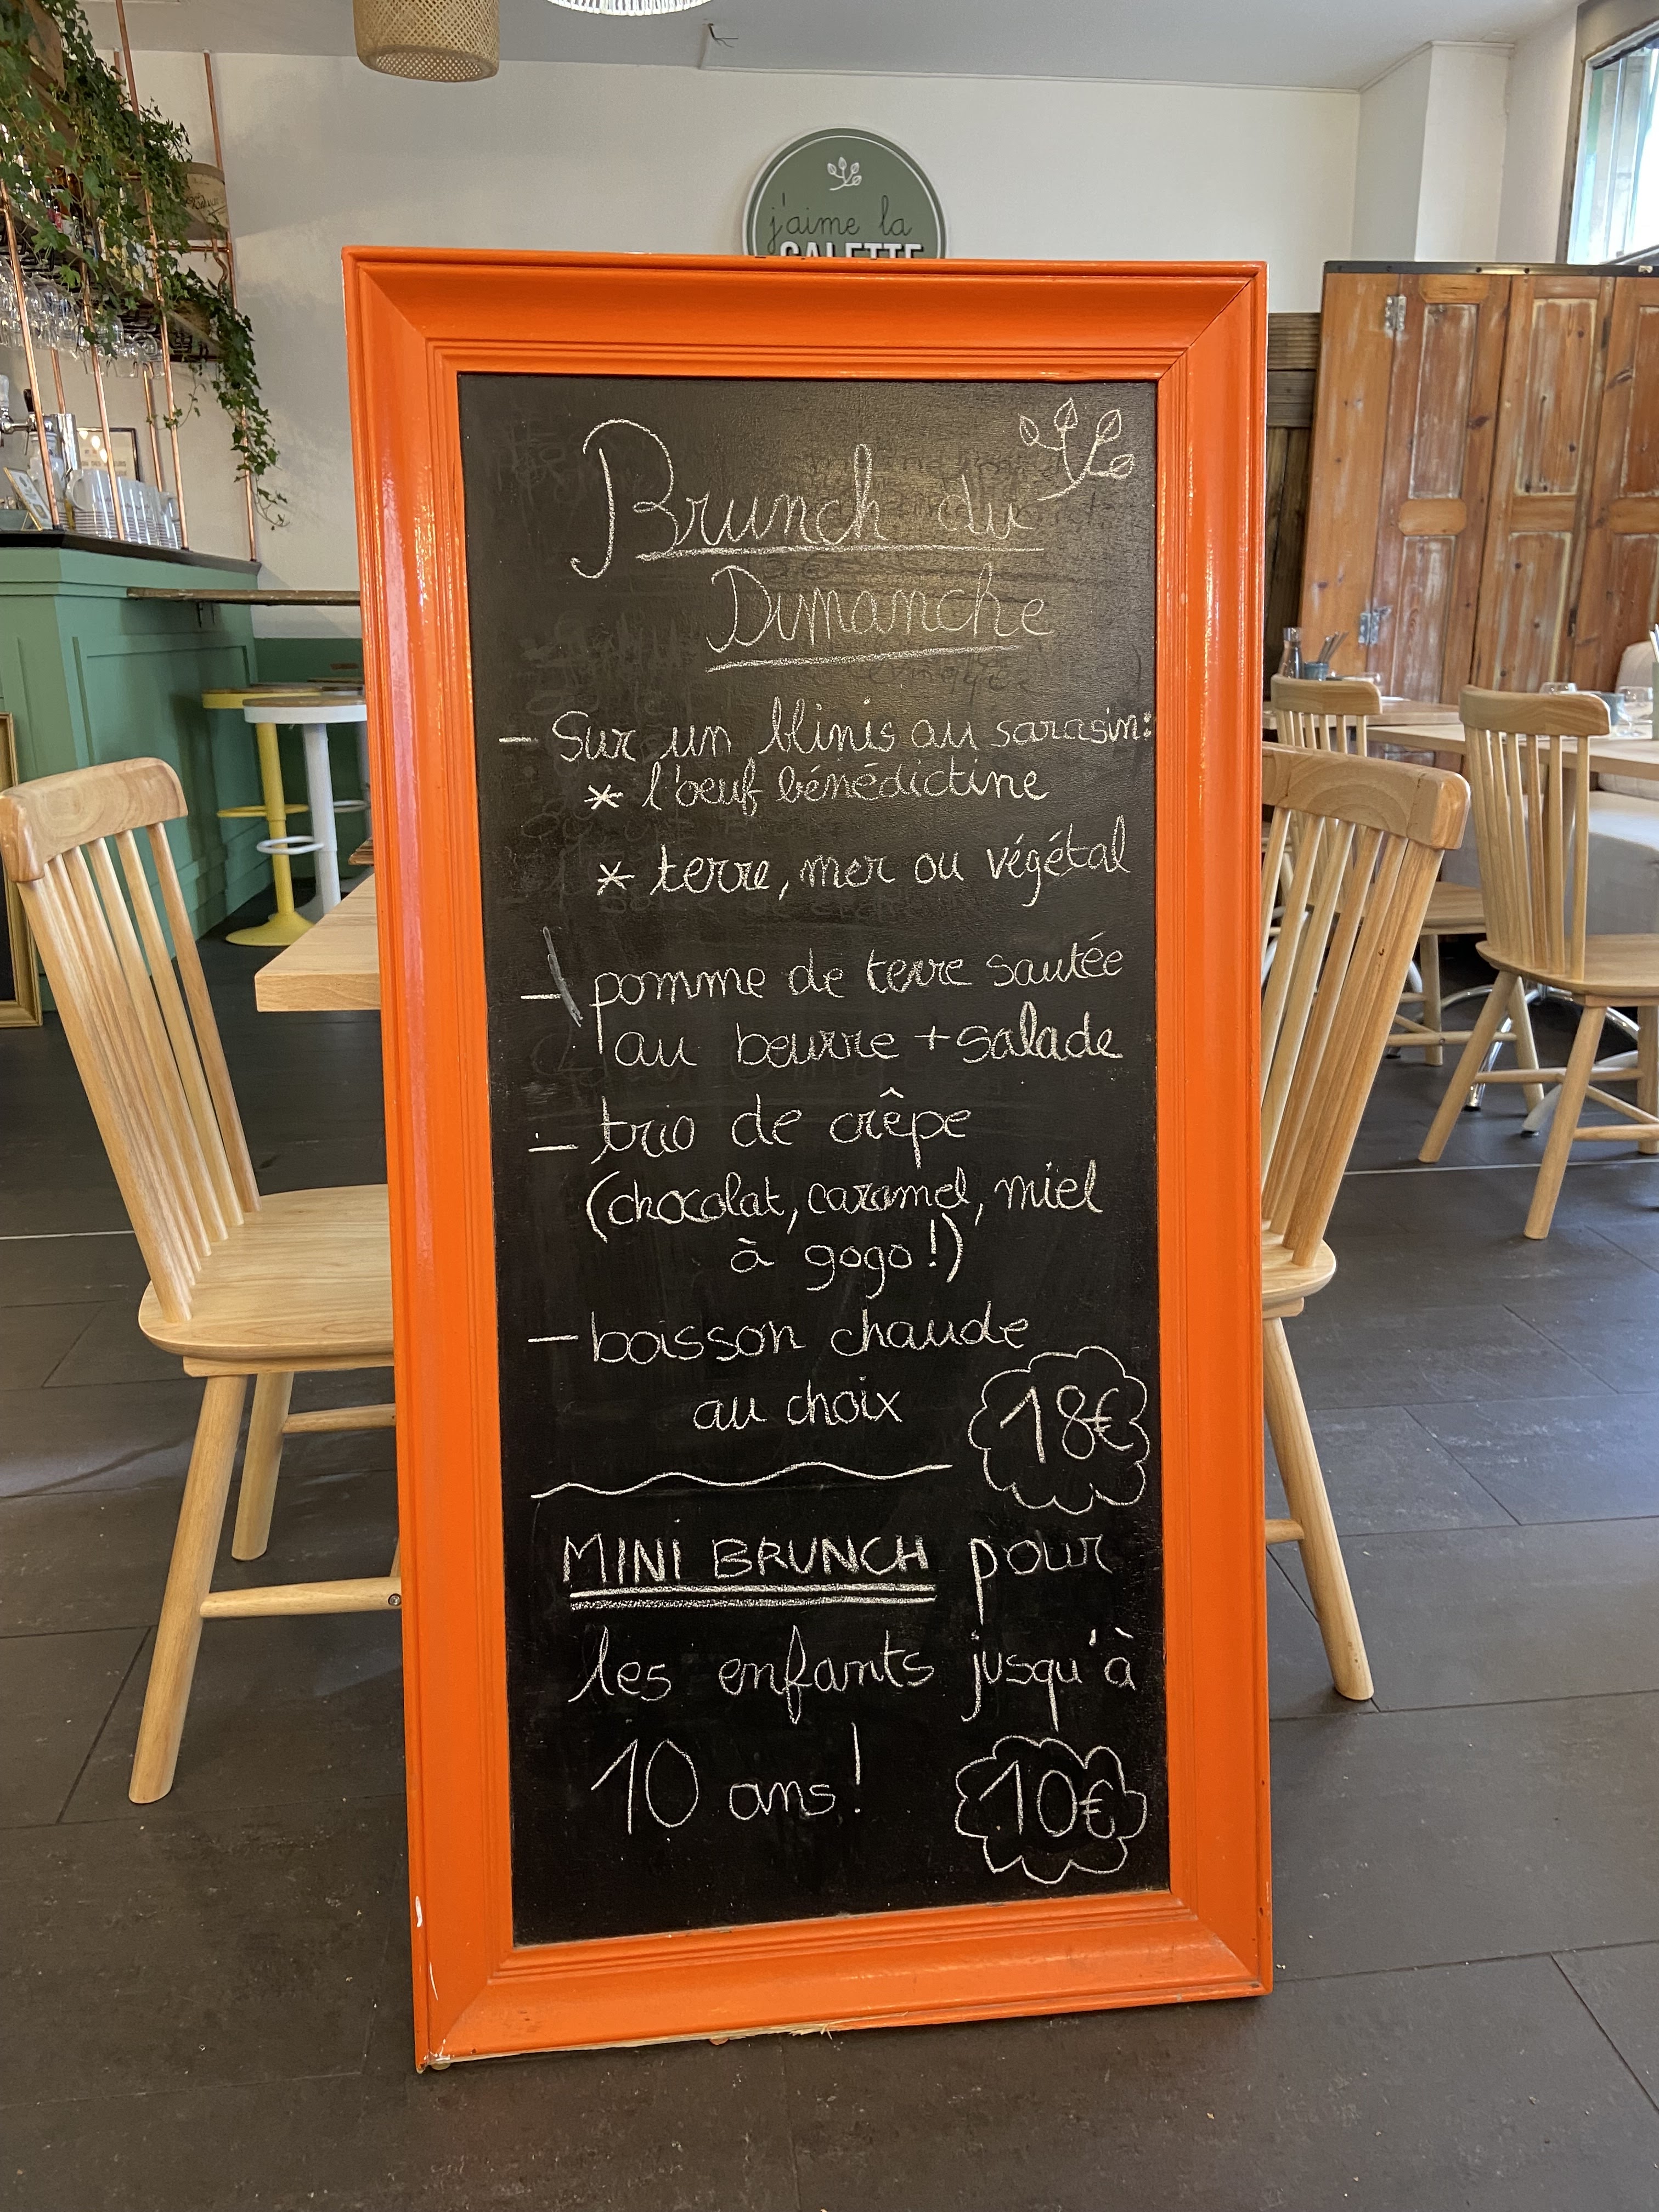 j'aime la
GALETTE
Brunch du
Dimanche
- Sur un blinis au sarasin:
* l'oeuf bénédictine
* terre, mer ou végétal
- pomme de terre sautée
au beurre + salade
- trio de crêpe
(chocolat, caramel, miel
à gogo!)
- boisson chaude
au choix
18€
MINI BRUNCH pour
les enfants jusqu'à
10 ans!
10€